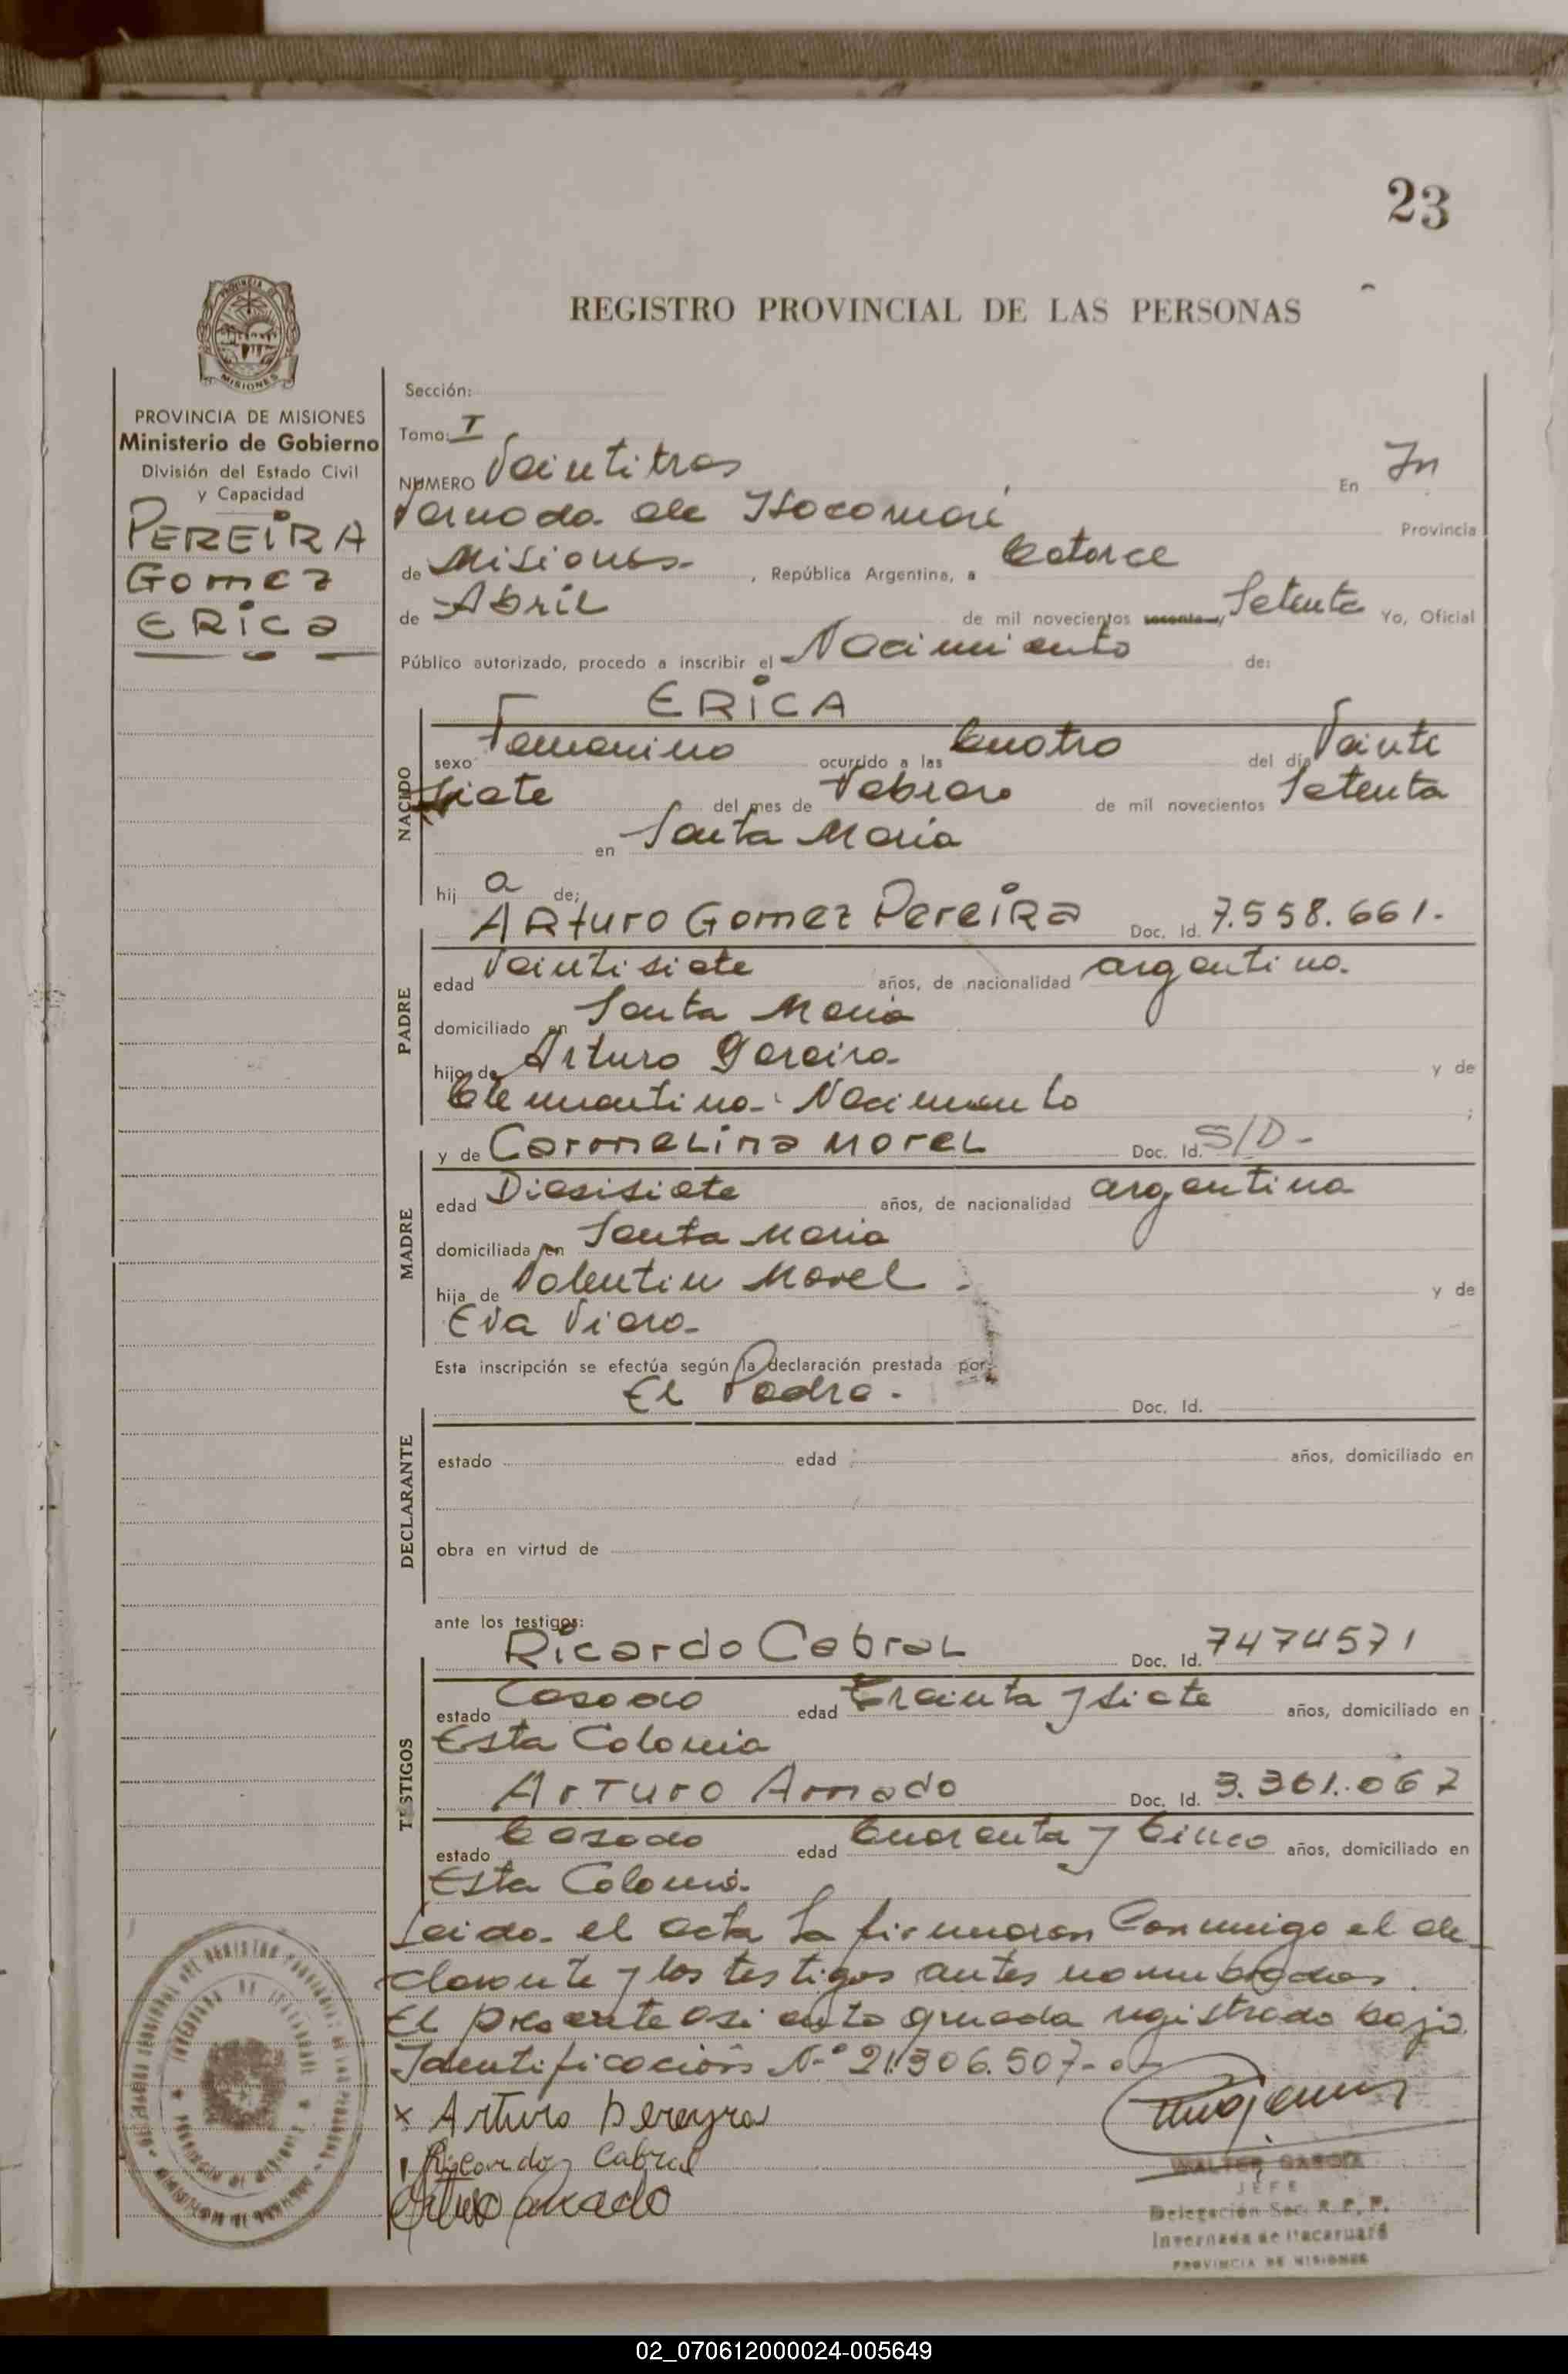 23
REGISTRO PROVINCIAL DE LAS PERSONAS
PROVINCIA DE MISIONES
Ministerio de Gobierno
División del Estado Civil
y Capacidad
PEREiRA
Gomez
ERica
Sección:
Tomo: I
NUMERO Veintitres En In
vernada de Itacaruaré Provincia
de Misiones. , República Argentina, a Catorce
de Abril de mil novecientos sesenta y Setenta Yo, Oficial
Público autorizado, procedo a inscribir el Nacimiento de:
ERiCA
NACIDO
sexo Femenino ocurrido a las Cuatro del día Veinte
siete del mes de Febrero de mil novecientos Setenta
en Santa Maria
hij a de;
PADRE
ARturo Gomez PereiRa Doc. Id. 7.558.661.
edad Veintisiete años, de nacionalidad argentina.
domiciliado en Santa Maria
hijo de Arturo Pereira y de
Clementina Nacimento ;
MADRE
y de Carmelina Morel Doc. Id. S/D-
edad Diesisiete años, de nacionalidad argentina
domiciliada en Santa Maria
hija de Valentin Morel y de
Eva Viera
Esta inscripción se efectúa según la declaración prestada por:
El Padre. Doc. Id.
DECLARANTE
estado edad años, domiciliado en
obra en virtud de
ante los testigos:
TESTIGOS
Ricardo Cabral Doc. Id. 7474571
estado Casado edad Treinta y siete años, domiciliado en
Esta Colonia
Arturo Amado Doc. Id. 3.361.067
estado Casado edad Cuarenta y Cinco años, domiciliado en
Esta Colonia
Leida el acta la firmaron Conmigo el de
clarante y los testigos antes nombrados.
El presente asiento queda registrado bajo
Identificación N.º 21.306.507-
x Arturo Pereyra
Ricardo Cabral
Arturo amado
WALTER GARCIA
JEFE
Delegación Sec. R. P. P.
Invernada de Itacaruaré
PROVINCIA DE MISIONES
02_070612000024-005649